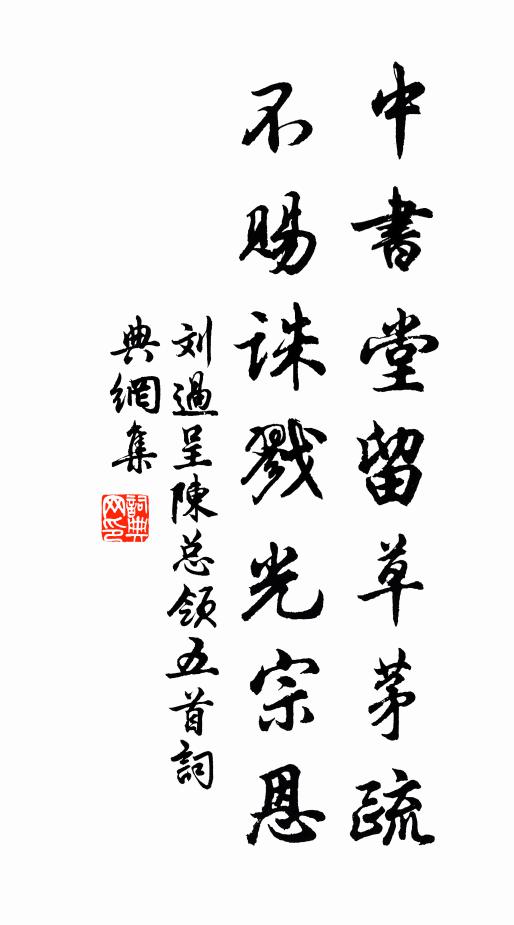 中書堂留草茅疏
不賜誅戮光宗恩
刘過呈陳总領五首詞
典網集
詞典
网印